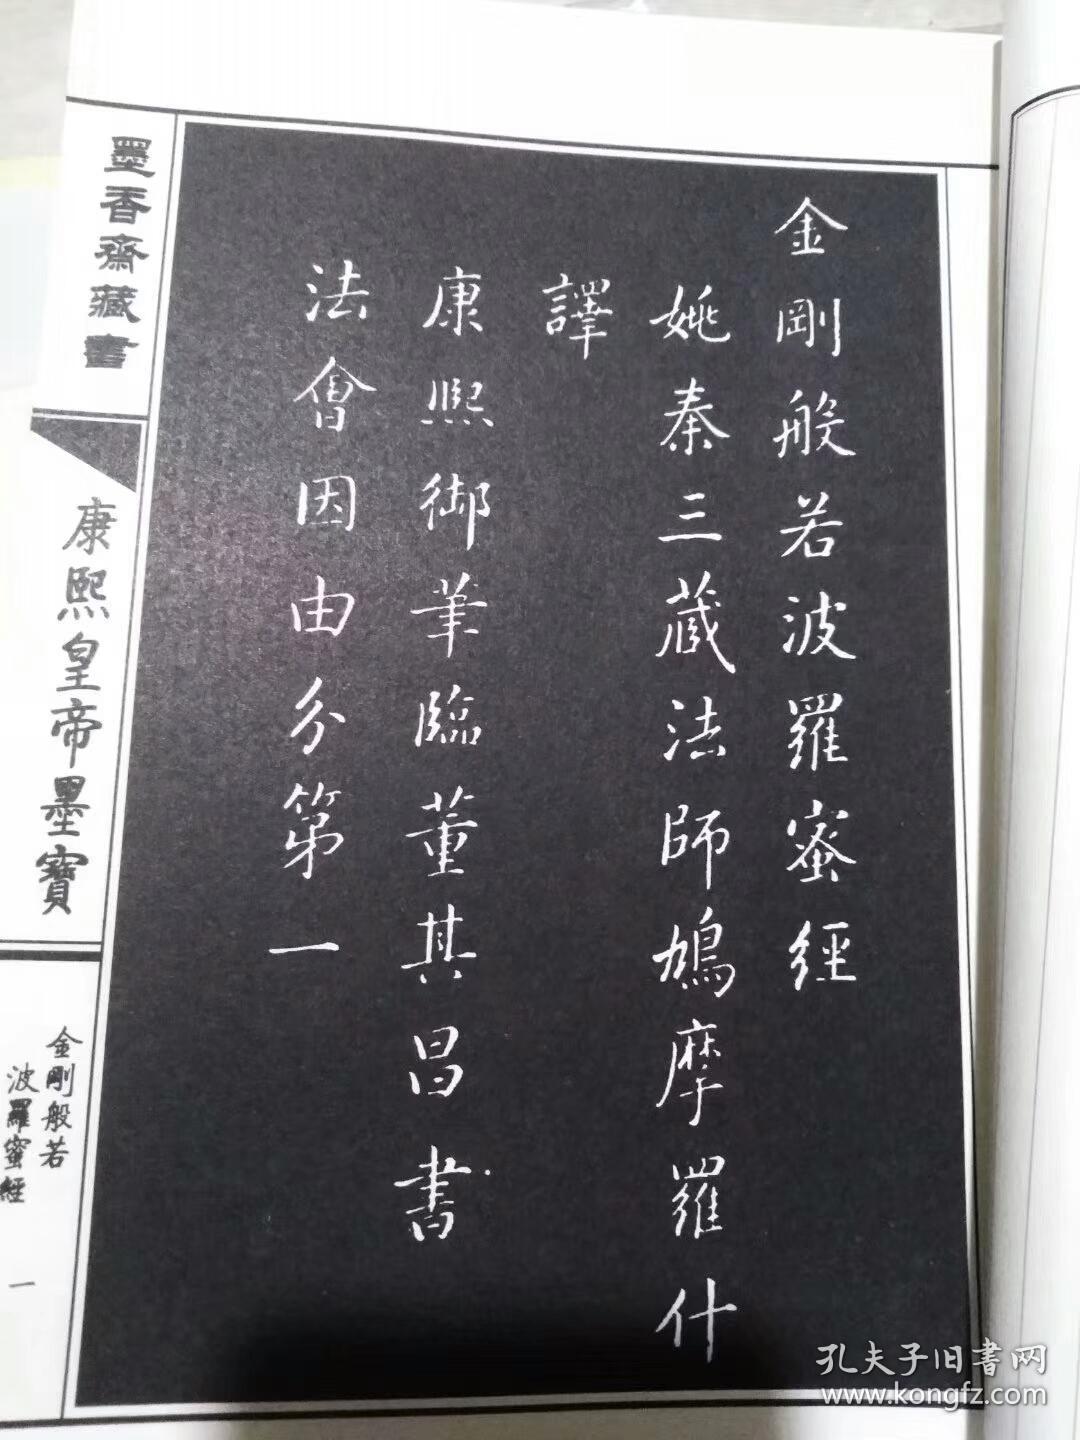 金剛般若波羅蜜經
姚秦三藏法師鳩摩羅什
譯
康熙御筆臨董其昌書
法會因由分第一
墨香齋藏書
康熙皇帝墨寶
金剛般若
波羅蜜經
一
孔夫子旧書网
www.kongfz.com